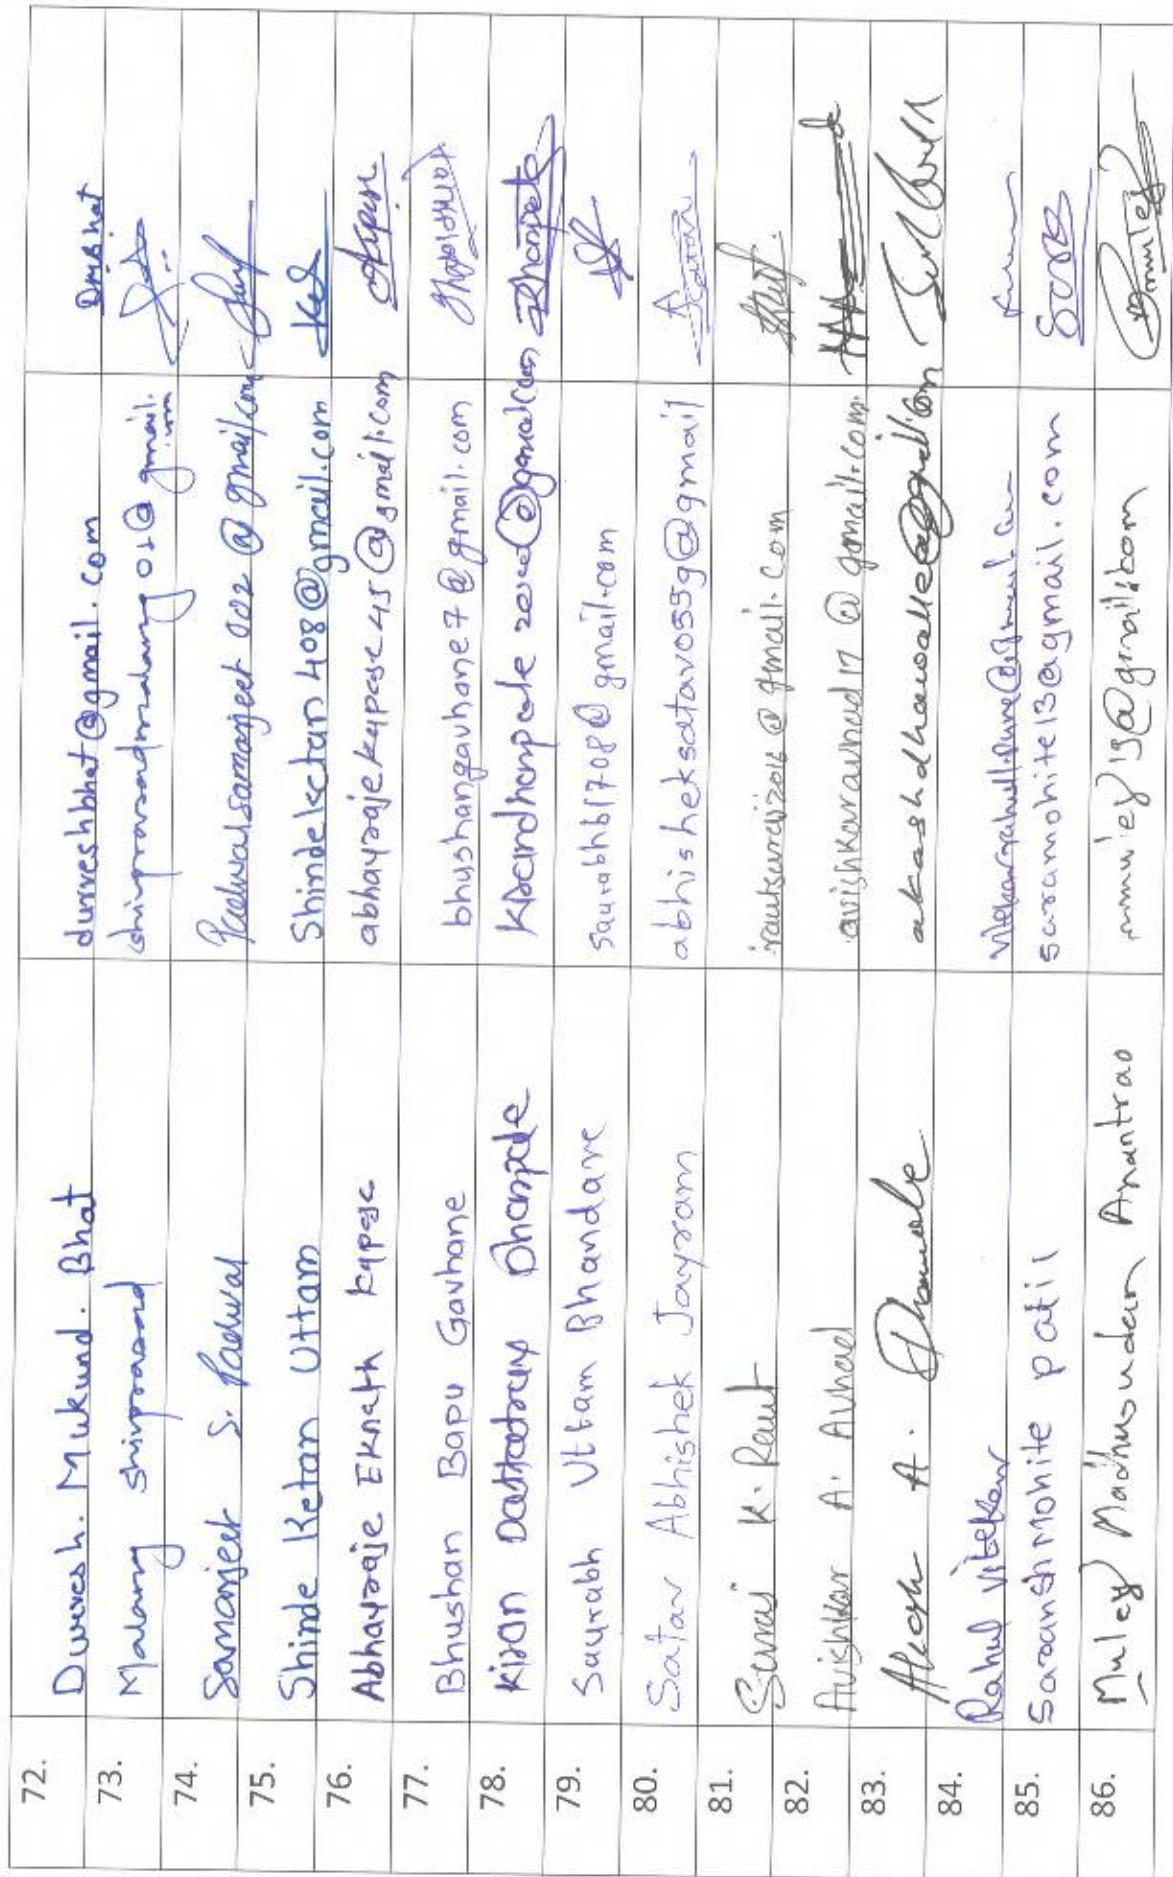 72. Durvesh. Mukund. Bhat durveshbhat@gmail.com DMBhat
73. Malang shivprasad shivprasadmalang01@gmail.com
74. Samarjeet S. Padwal Padwalsamarjeet002@gmail.com
75. Shinde Ketan Uttam Shindeketan408@gmail.com
76. Abhayraje Eknath Kapase abhayrajekapase45@gmail.com
77. Bhushan Bapu Gavhane bhushangavhane7@gmail.com
78. Kiran Dattatray Dhampale
79. Saurabh Uttam Bhandare saurabhb1708@gmail.com
80. Satav Abhishek Jayram abhisheksatav0559@gmail
81. Suraj K. Raut rautsuraj2016@gmail.com
82. Avishkar A. Avhad avishkaravhad17@gmail.com
83. Akash A. Dhawale
84. Rahul Vitekar
85. Saransh Mohite patil saramohite13@gmail.com
86. Muley Madhusudan Anantrao